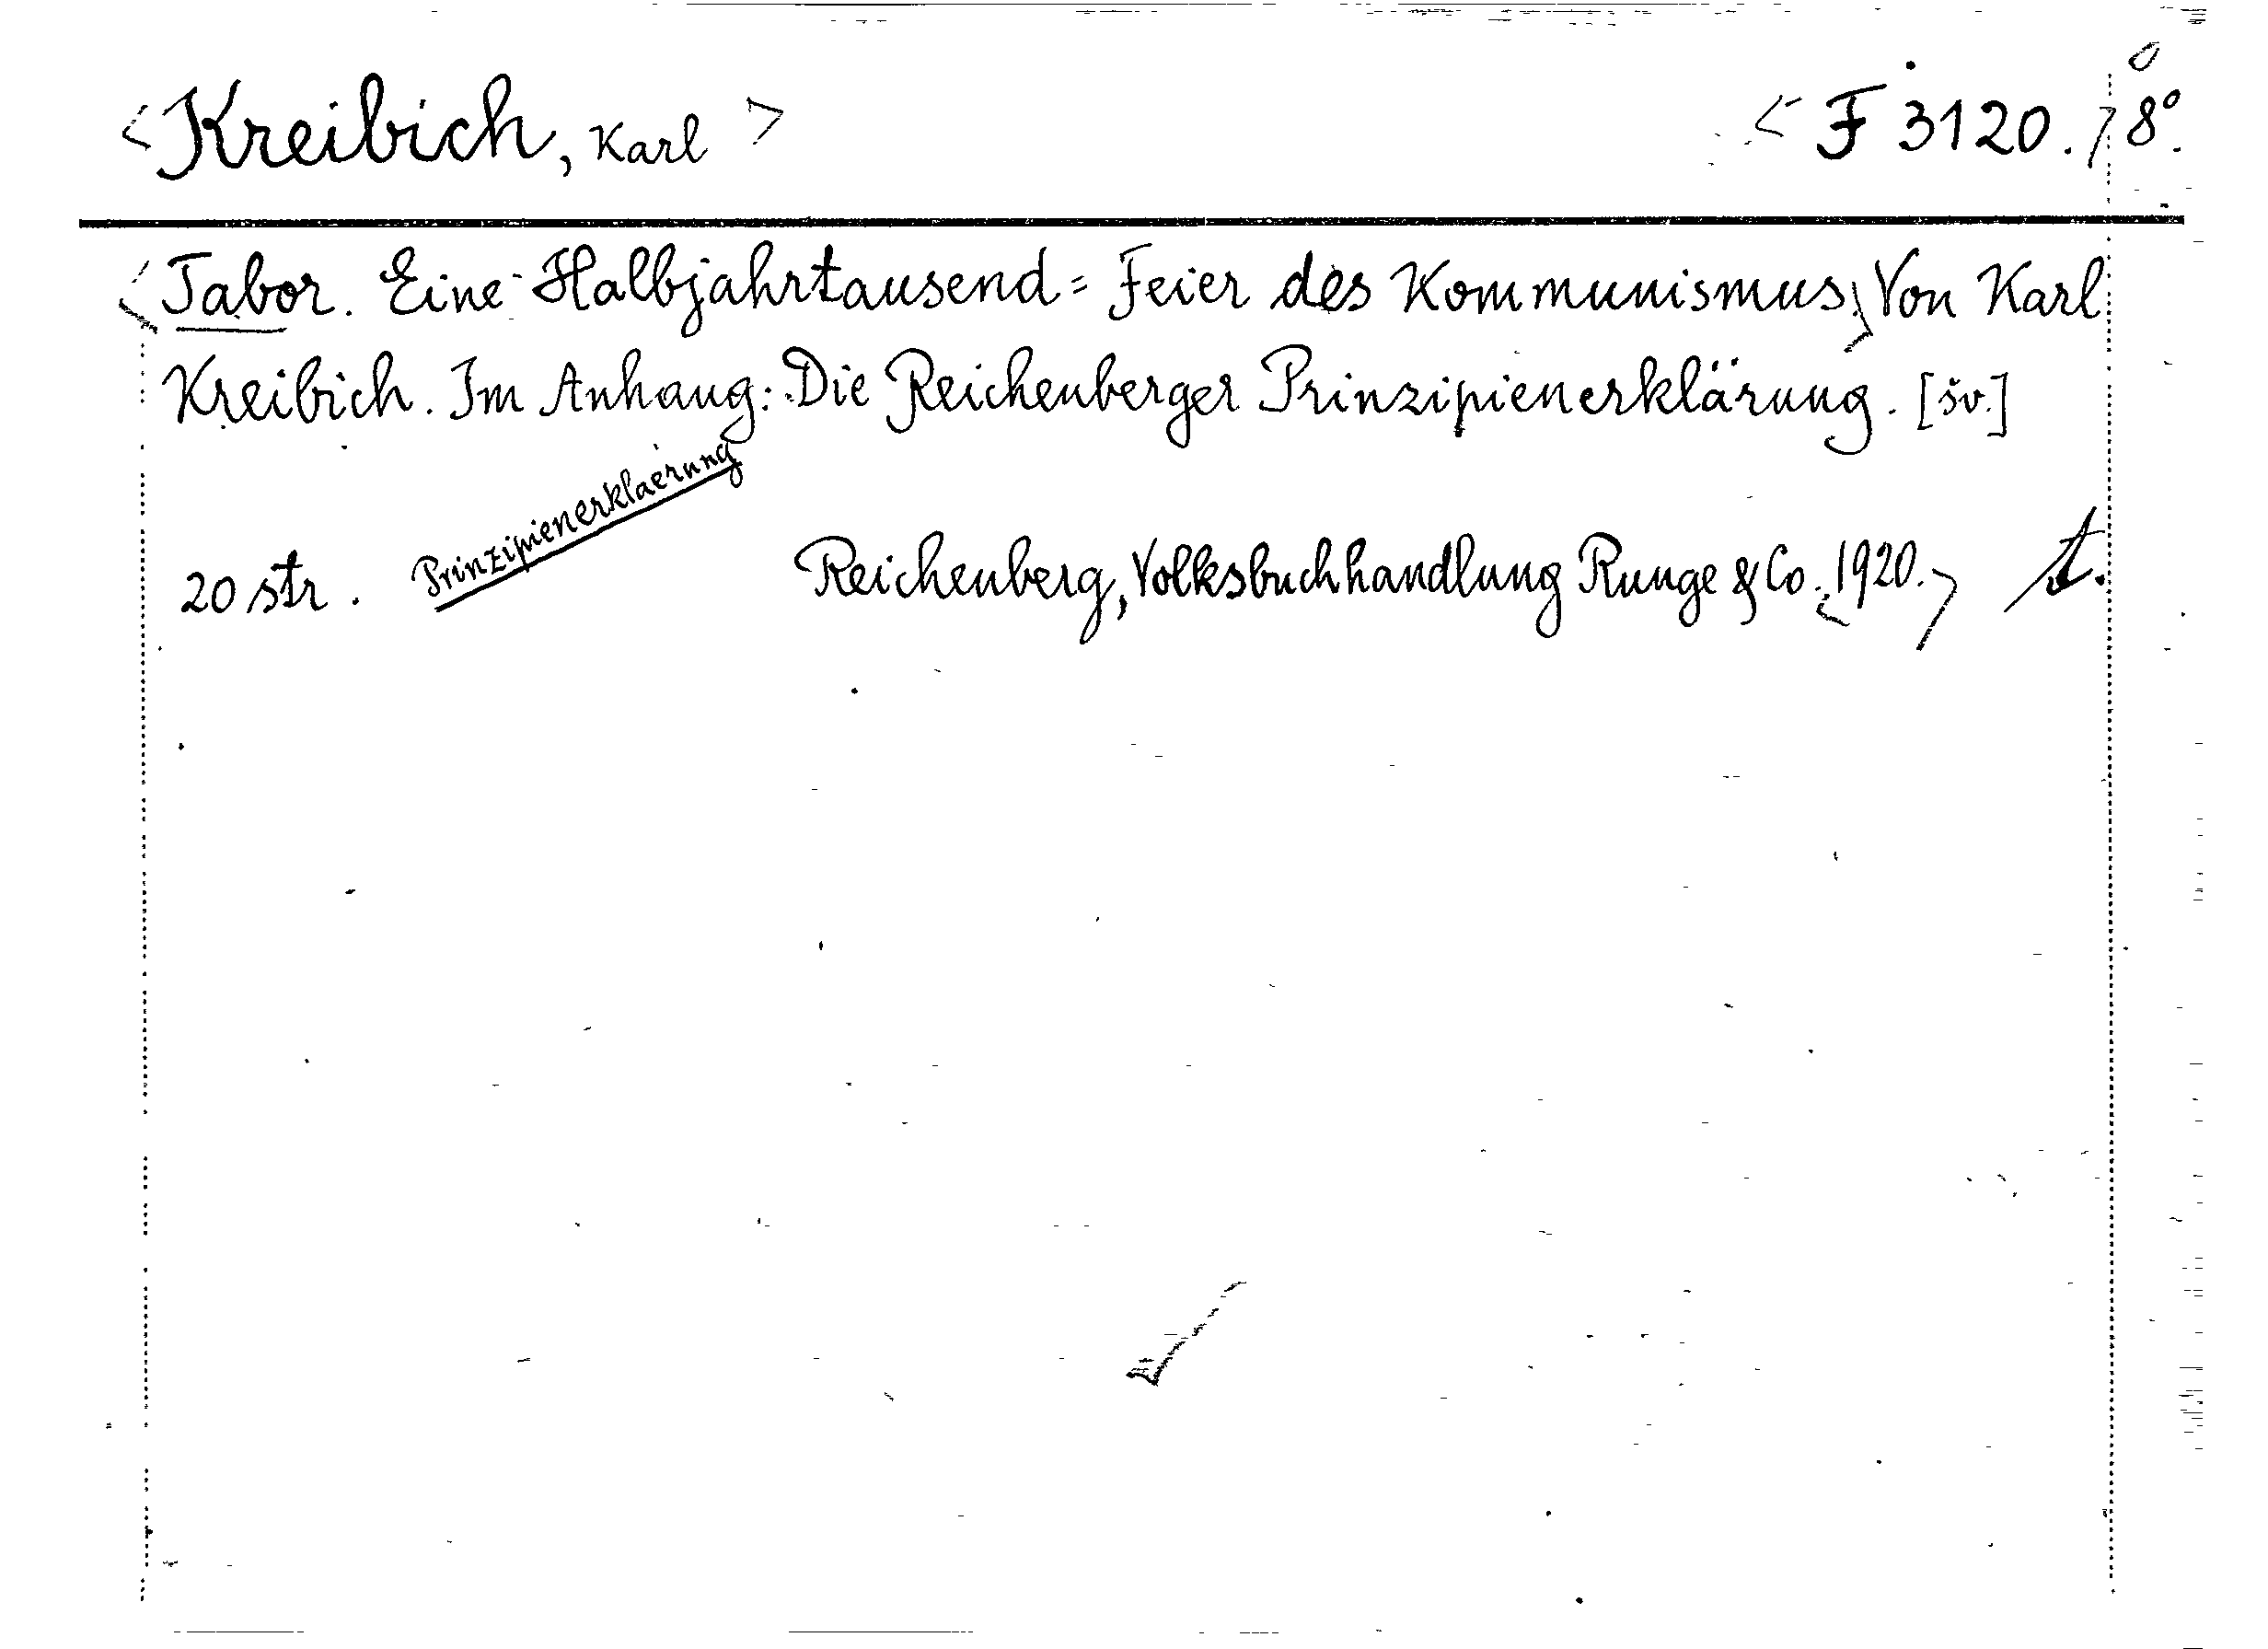 <Kreibich, Karl> <F 3120.> 8°.
<Tabor. Eine Halbjahrtausend=Feier des Kommunismus.> Von Karl
Kreibich. Im Anhang: Die Reichenberger Prinzipienerklärung. [šv.]
Prinzipienerklaerung
20 str. Reichenberg, Volksbuchhandlung Runge & Co. <1920.> t.